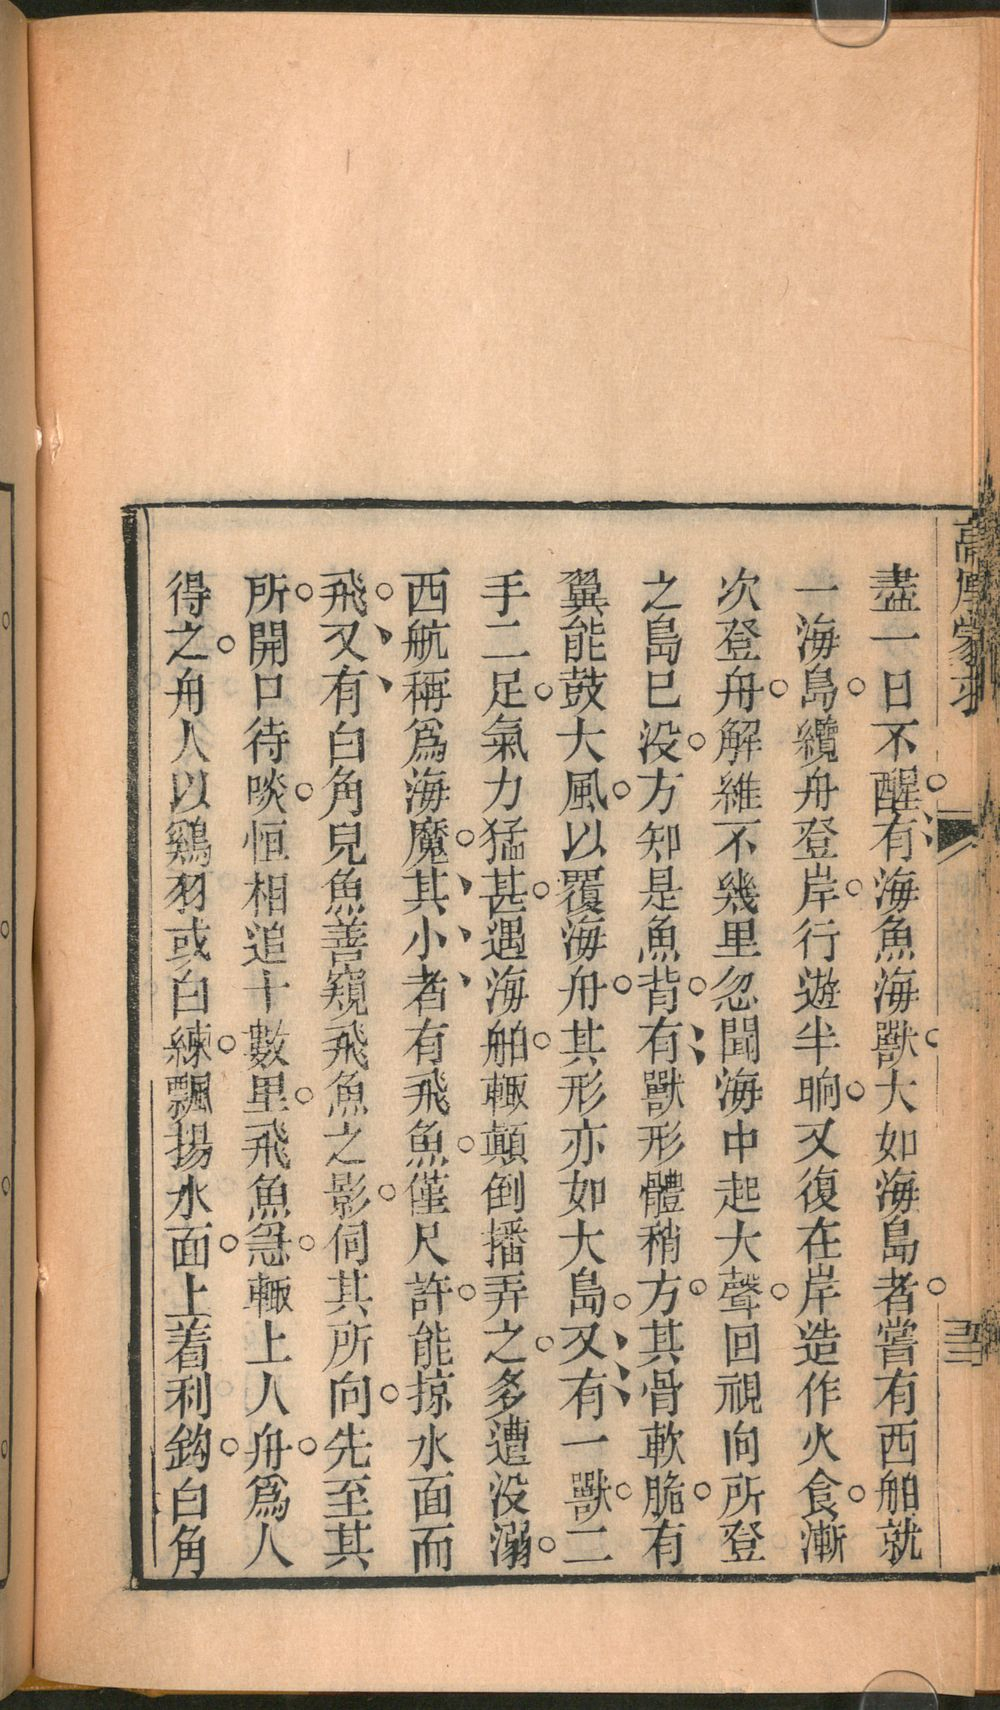 盡一日不醒。有海魚海獸。大如海島者。嘗有西舶就
一海島。纜舟登岸。行遊半晌。又復在岸造作火食。漸
次登舟。解維不幾里。忽聞海中起大聲。回視向所登
之島已没。方知是魚背。有獸形體稍方。其骨軟脆。有
翼能鼓大風。以覆海舟。其形亦如大島。又有一獸。二
手二足。氣力猛甚。遇海舶。輒顛倒播弄之。多遭没溺。
西航稱爲海魔。其小者有飛魚。僅尺許。能掠水面而
飛。又有白角兒魚善窺飛魚之影。伺其所向。先至其
所。開口待啖。恒相追十數里。飛魚急。輒上人舟。爲人
得之。舟人以鷄羽或白練。飄揚水面。上着利鈎。白角